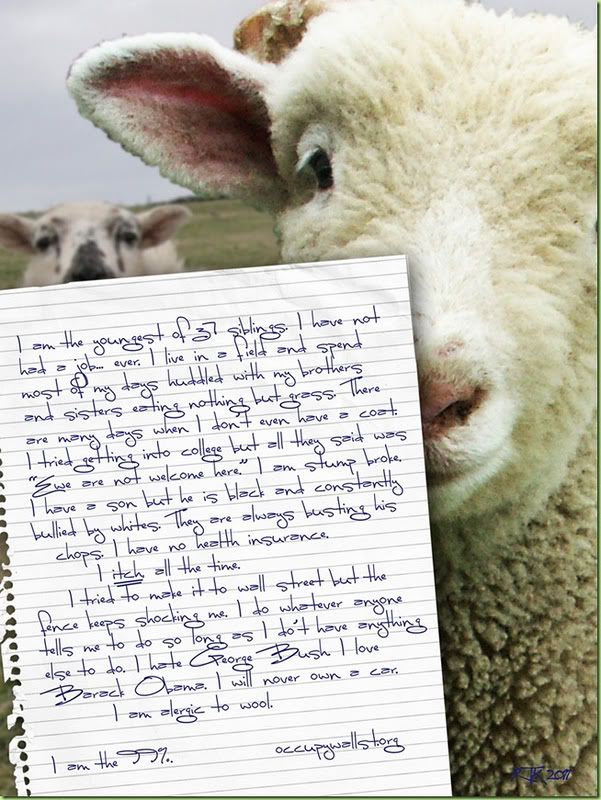 I am the youngest of 37 siblings. I have not
had a job... ever. I live in a field and spend
most of my days huddled with my brothers
and sisters eating nothing but grass. There
are many days when I don't even have a coat.
I tried getting into college but all they said was
"Ewe are not welcome here." I am stump broke.
I have a son but he is black and constantly
bullied by whites. They are always busting his
chops. I have no health insurance.
I itch all the time.
I tried to make it to wall street but the
fence keeps shocking me. I do whatever anyone
tells me to do so long as I do't have anything
else to do. I hate George Bush I love
Barack Obama. I will never own a car.
I am alergic to wool.
I am the 99%.. occupywallst.org